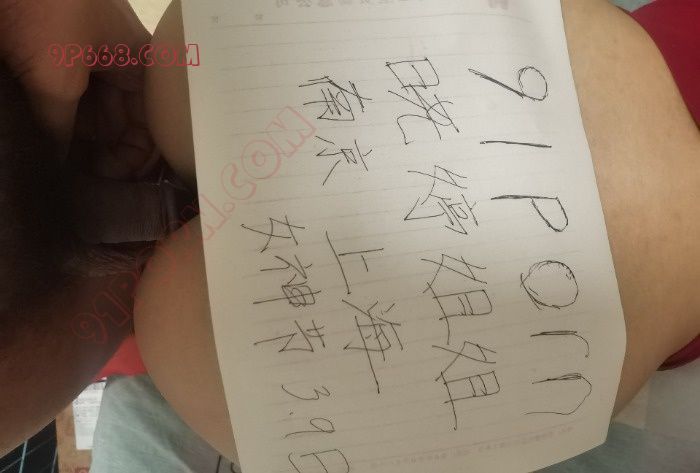 9P668.COM
91Porn
晓婷姐姐
南京 上海
女神节 3.9日